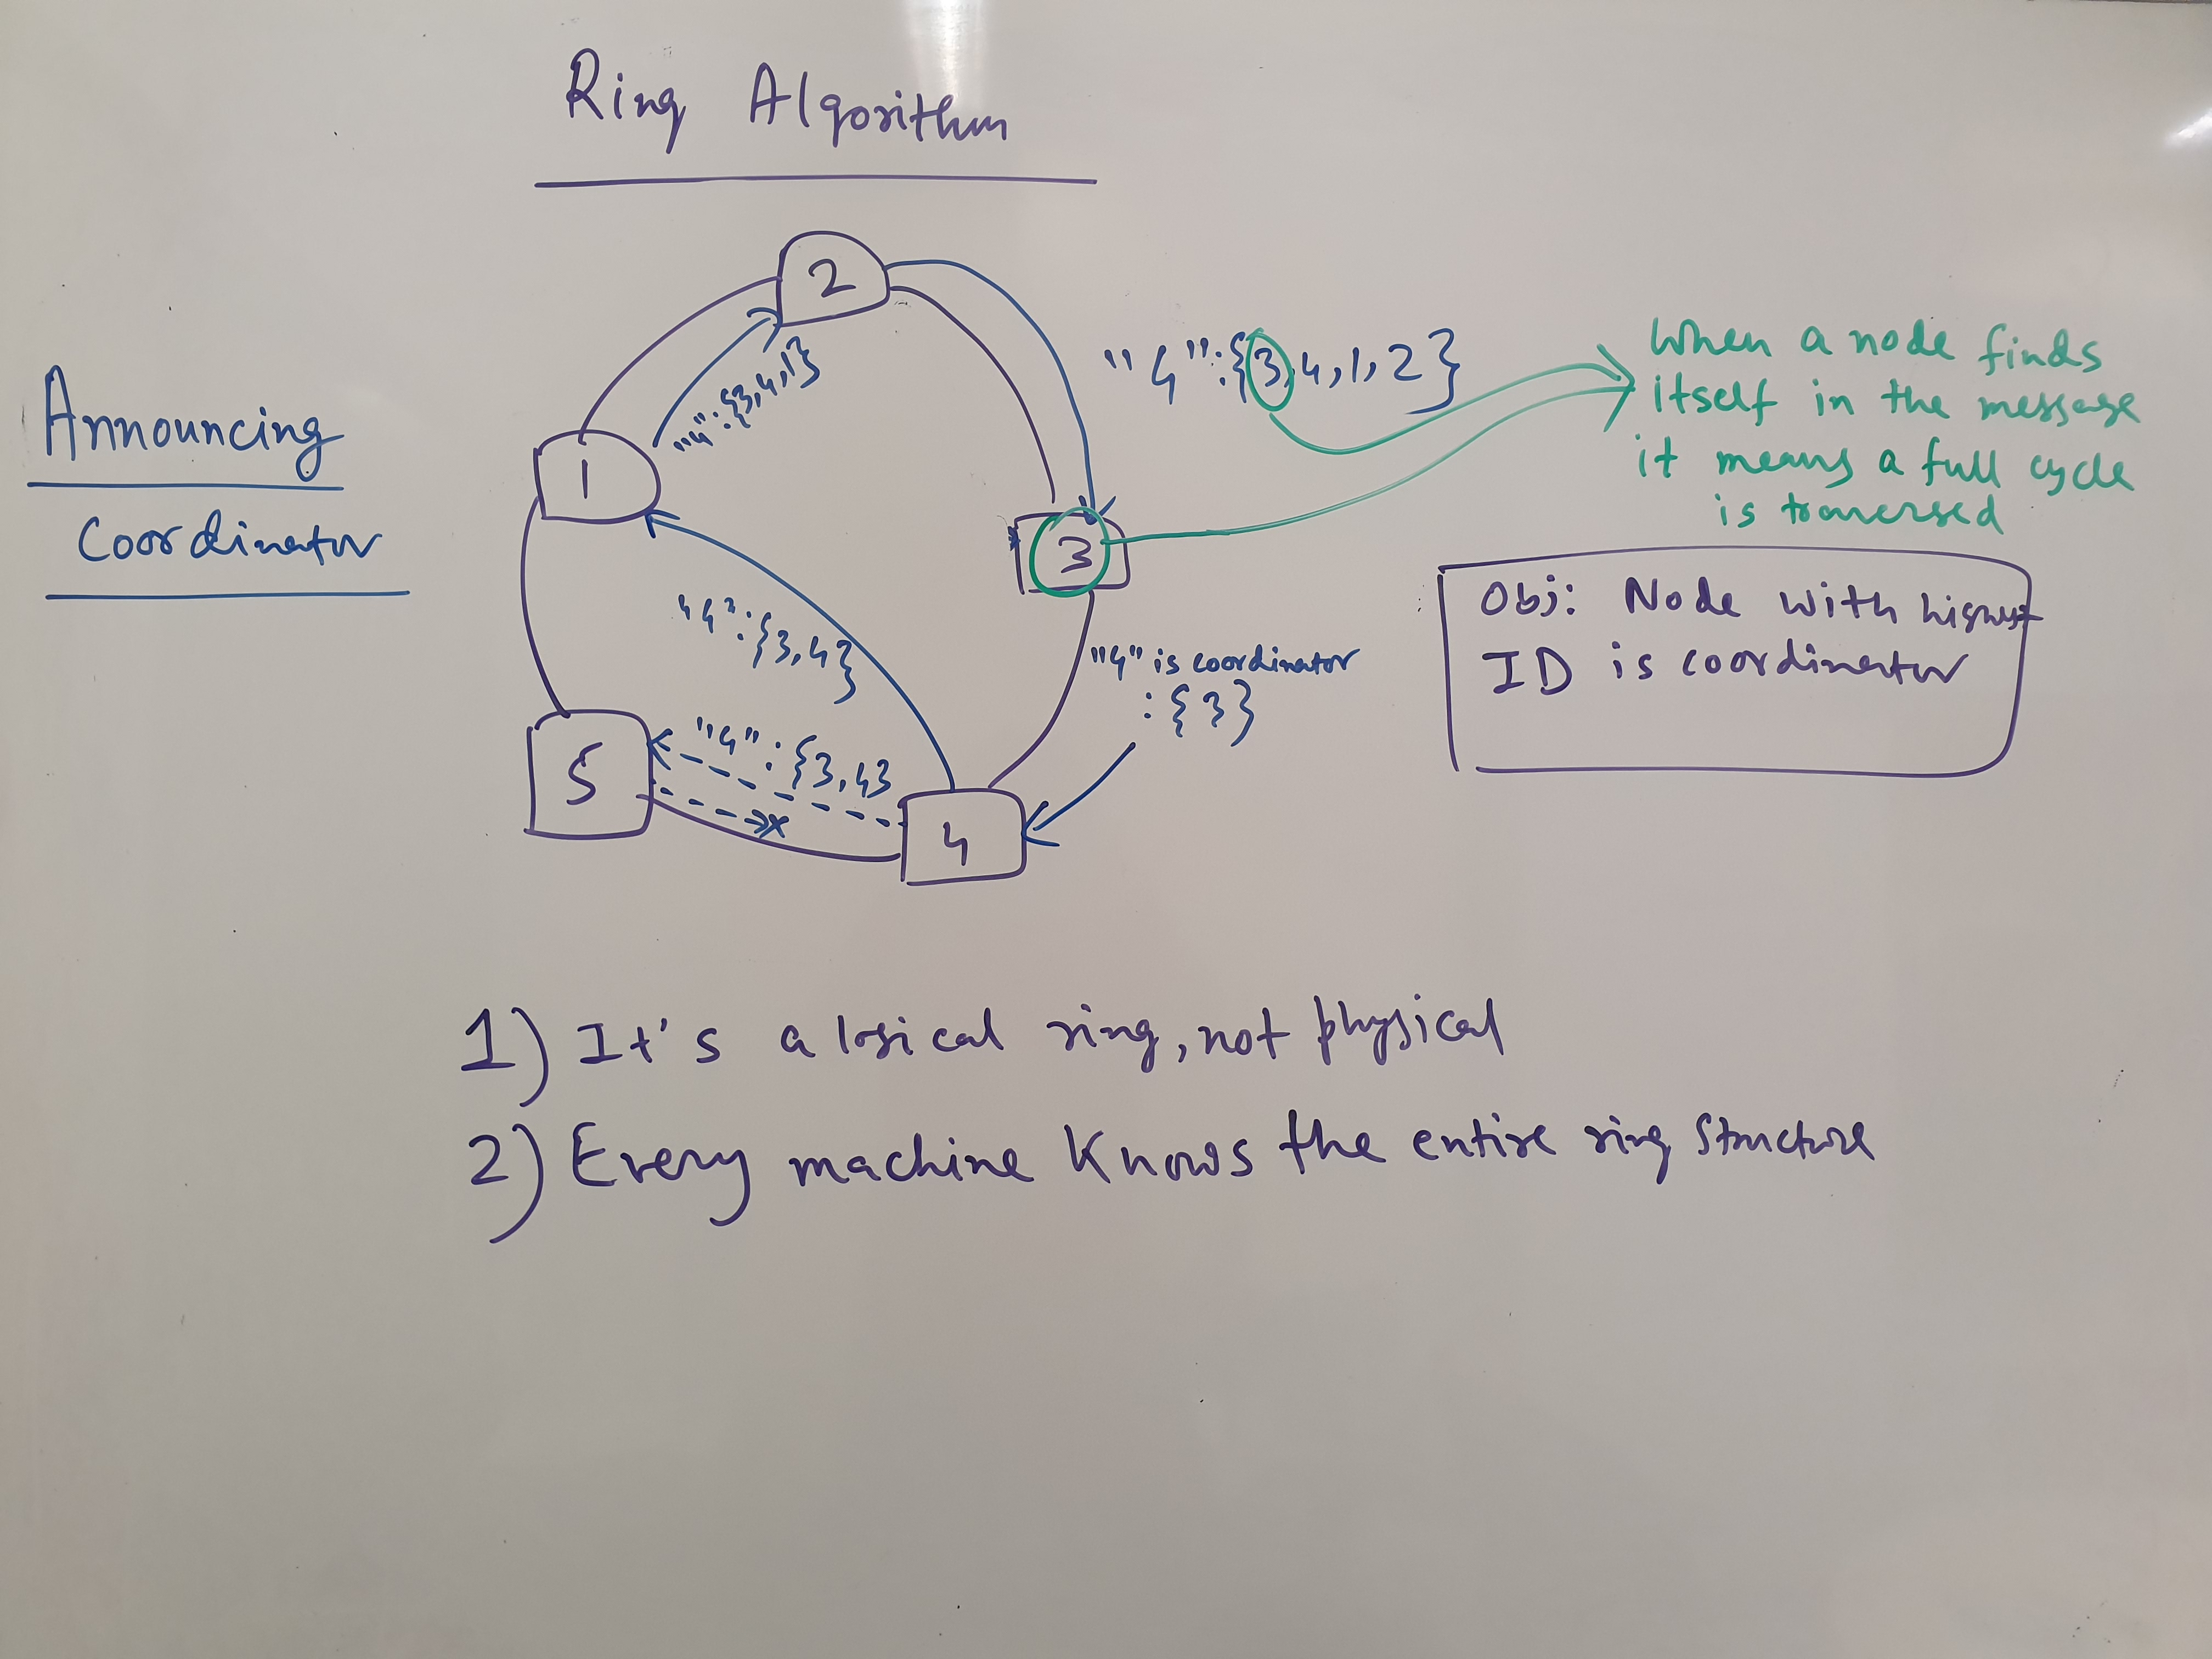 Ring Algorithm
Announcing
Coordinator
2
"4":{3,4,1}
"4":{3,4,1,2}
When a node finds
itself in the message
it means a full cycle
is traversed
1
3
"4":{3,4}
"4" is coordinator
:{3}
Obj: Node with highest
ID is coordinator
5
"4":{3,4}
4
1) It's a logical ring, not physical
2) Every machine knows the entire ring structure